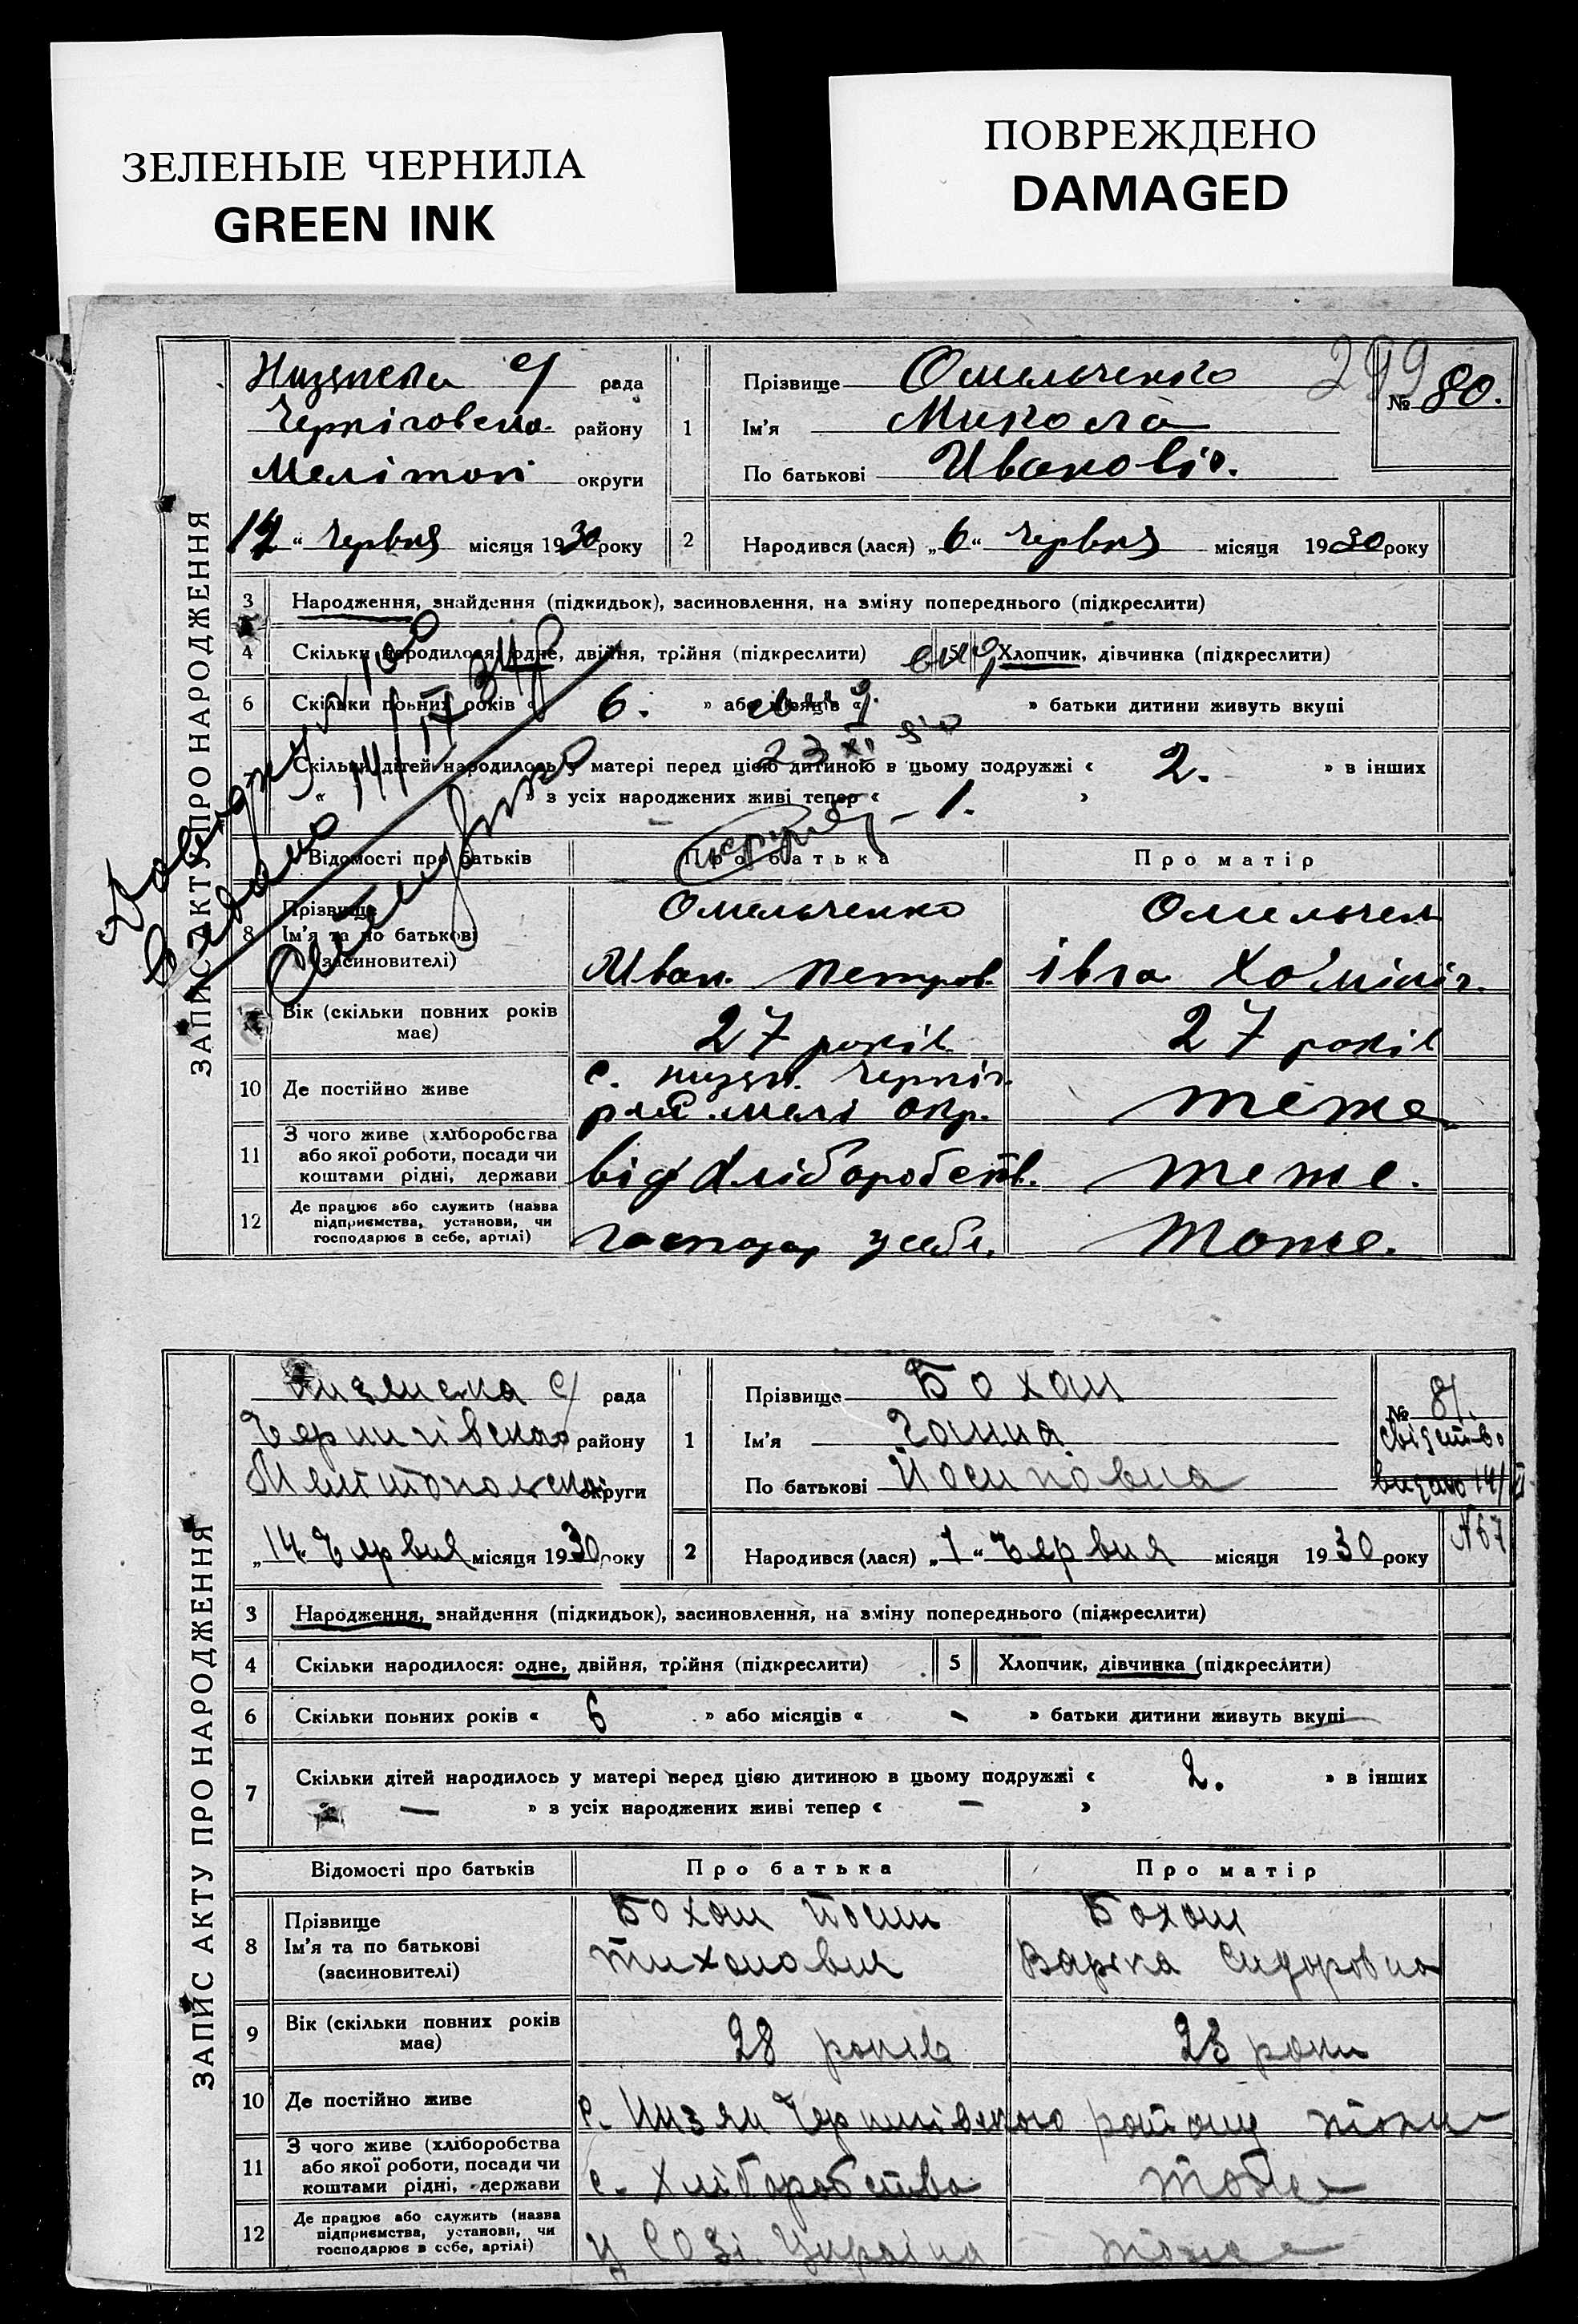 ЗЕЛЕНЫЕ ЧЕРНИЛА
GREEN INK
ПОВРЕЖДЕНО
DAMAGED
299
ЗАПИС АКТУ ПРО НАРОДЖЕННЯ
Низянська с/ рада
Чернігівськ. району
Мелітоп округи
"12" червня місяця 1930 року
1 Прізвище Омельченко
Ім'я Микола
По батькові Иванові.
№ 80.
2 Народився (лася) „6" червня місяця 1930 року
3 Народження, знайдення (підкидьок), засиновлення, на зміну попереднього (підкреслити)
4 Скільки народилося: одне, двійня, трійня (підкреслити) 5 Хлопчик, дівчинка (підкреслити)
6 Скільки повних років « 6. » або місяців « » батьки дитини живуть вкупі
Скільки дітей народилось у матері перед цією дитиною в цьому подружжі « 2. » в інших
« » з усіх народжених живі тепер « 1. »
23 XI
Видано 14/IV 34
Відомості про батьків Про батька Про матір
8 Прізвище Омельченко Омельчен
Ім'я та по батькові Иван. Петров. Івга Хо'миніч.
(засиновителі)
Вік (скільки повних років має) 27 років 27 років
10 Де постійно живе с. низян. черніг. рай. мелі окр. теже
11 З чого живе (хліборобства або якої роботи, посади чи коштами рідні, держави від хліборобств. теже.
12 Де працює або служить (назва підприємства, установи, чи господарює в себе, артілі) господар у себе. Тоже.
ЗАПИС АКТУ ПРО НАРОДЖЕННЯ
Низянська с/ рада
Чернигівська району
Мелитопольська округи
„14" Червня місяця 1930 року
1 Прізвище Бохан
Ім'я Ганна
По батькові Йосиповна
№ 81.
свідоцтво
видано 14/II
№67
2 Народився (лася) „7" Червня місяця 1930 року
3 Народження, знайдення (підкидьок), засиновлення, на зміну попереднього (підкреслити)
4 Скільки народилося: одне, двійня, трійня (підкреслити) 5 Хлопчик, дівчинка (підкреслити)
6 Скільки повних років « 6 » або місяців « - » батьки дитини живуть вкупі
7 Скільки дітей народилось у матері перед цією дитиною в цьому подружжі « 2. » в інших
« — » з усіх народжених живі тепер « — »
Відомості про батьків Про батька Про матір
8 Прізвище Бохан Йосип Бохан
Ім'я та по батькові Тихонович Варка Сидоровна
(засиновителі)
9 Вік (скільки повних років має) 28 років 23 роки
10 Де постійно живе с. Низян Чернигівского району тоже
11 З чого живе (хліборобства або якої роботи, посади чи коштами рідні, держави с. Хліборобства тоже
12 Де працює або служить (назва підприємства, установи, чи господарює в себе, артілі) у Созі. Україна тоже